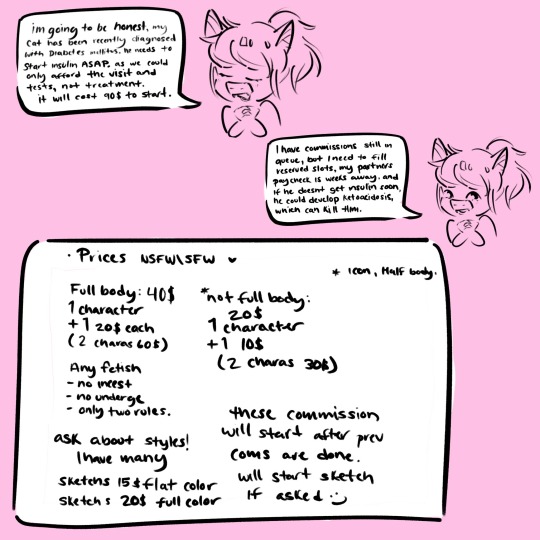 im going to be honest, my
cat has been recently diagnosed
with Diabetes mellitus. he needs to
start insulin ASAP, as we could
only afford the visit and
tests, not treatment.
it will cost 90$ to start.
I have commissions still in
queue, but I need to fill
reserved slots, my partners
paycheck is weeks away. and
if he doesnt get insulin soon,
he could develop ketoacidosis,
which can kill him.
· Prices NSFW\SFW ♥
* Icon, Half body.
Full body: 40$
1 character
+1 20$ each
(2 charas 60$)
Any fetish
- no incest
- no underge
- only two rules.
ask about styles!
I have many
sketchs 15$ flat color
sketchs 20$ full color
*not full body:
20$
1 character
+1 10$
(2 charas 30$)
these commission
will start after prev
coms are done.
will start sketch
if asked :)